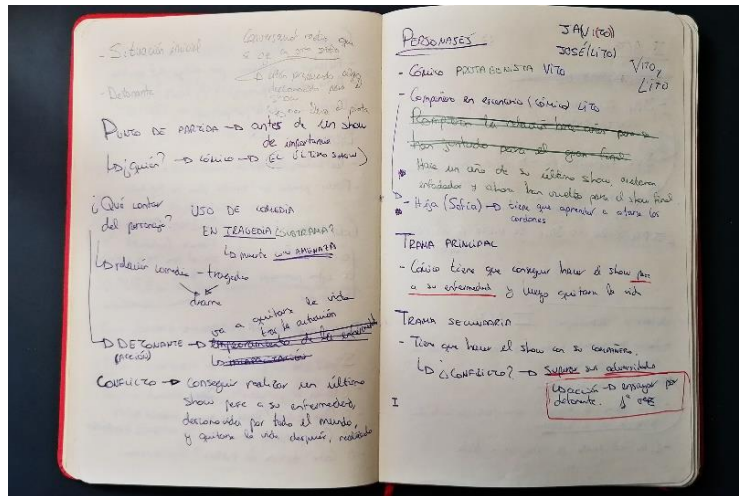 - Situación inicial
- Detonante
PUNTO DE PARTIDA → antes de un show
de importancia
↳ ¿quién? → cómico → (EL ÚLTIMO SHOW)
¿Qué contar
del personaje?
USO DE COMEDIA
EN TRAGEDIA
↳ muerte UNA AMENAZA
↳ relación comedia - tragedia
drama
va a quitarse la vida
en la actuación
DETONANTE →
(acción)
CONFLICTO → Conseguir realizar un último
show pese a su enfermedad,
desconocida por todo el mundo,
y quitarse la vida después,
PERSONAJES
JAVI(TO)
JOSÉ(LITO)
VITO,
LITO
- Cómico PROTAGONISTA VITO
- Compañero en escenario (cómico) LITO
han juntado para el gran final
Hace un año de su último show, estaban
enfadados y ahora han vuelto para el show final
- Hija (Sofía) → tiene que aprender a atarse los
cordones
TRAMA PRINCIPAL
- Cómico tiene que conseguir hacer el show pese
a su enfermedad y luego quitarse la vida
TRAMA SECUNDARIA
- Tiene que hacer el show con su compañero.
↳ ¿CONFLICTO? → superar sus adversidades
↳ acción → ensayar por
detonante. 1ª vez
I